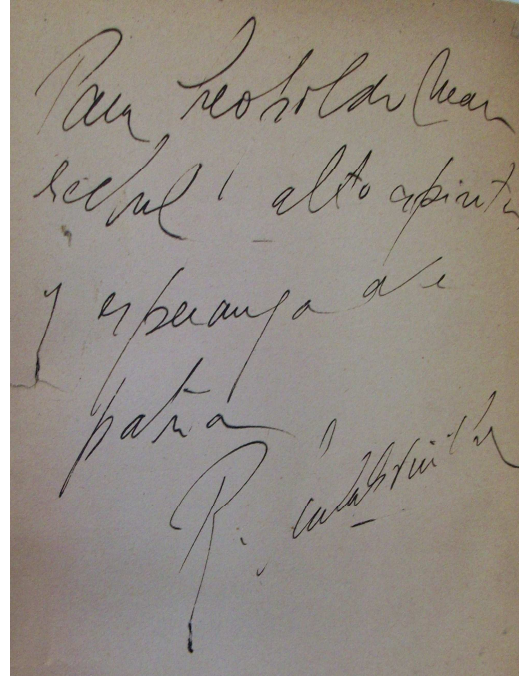 Para Leopoldo Mare
chal, alto espíritu
y esperanza de
patria
R.